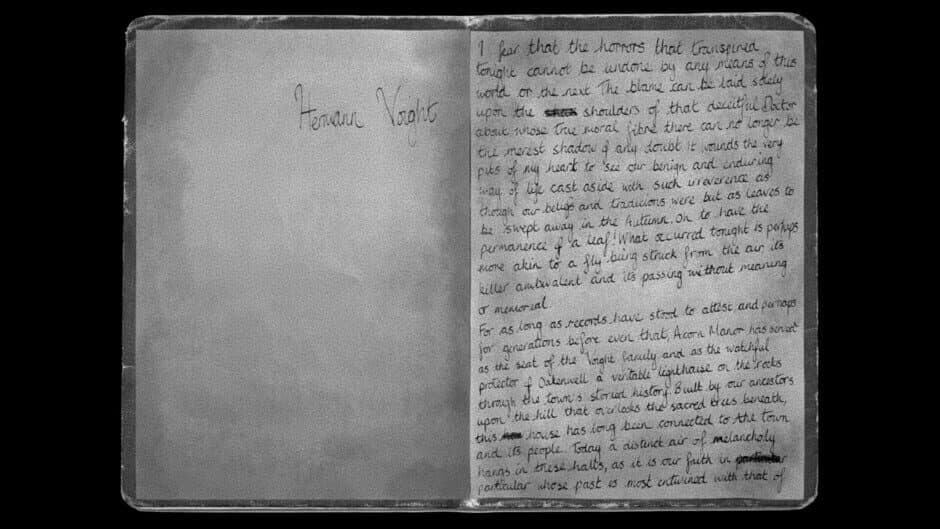 Hermann Voight
I fear that the horrors that transpired
tonight cannot be undone by any means of this
world or the next. The blame can be laid solely
upon the shoulders of that deceitful Doctor
about whose true moral fibre there can no longer be
the merest shadow of any doubt. It wounds the very
pits of my heart to see our benign and enduring
way of life cast aside with such irreverence as
though our beliefs and traditions were but as leaves to
be swept away in the Autumn. Oh to have the
permanence of a leaf! What occurred tonight is perhaps
more akin to a fly being struck from the air its
killer ambivalent and its passing without meaning
or memorial.
For as long as records have stood to attest and perhaps
for generations before even that, Acorn Manor has served
as the seat of the Voight family and as the watchful
protector of Oakenwell a veritable lighthouse on the rocks
through the town's storied history. Built by our ancestors
upon the hill that overlooks the sacred trees beneath,
this house has long been connected to the town
and its people. Today a distinct air of melancholy
hangs in these halls, as it is our faith in particular
particular whose past is most entwined with that of